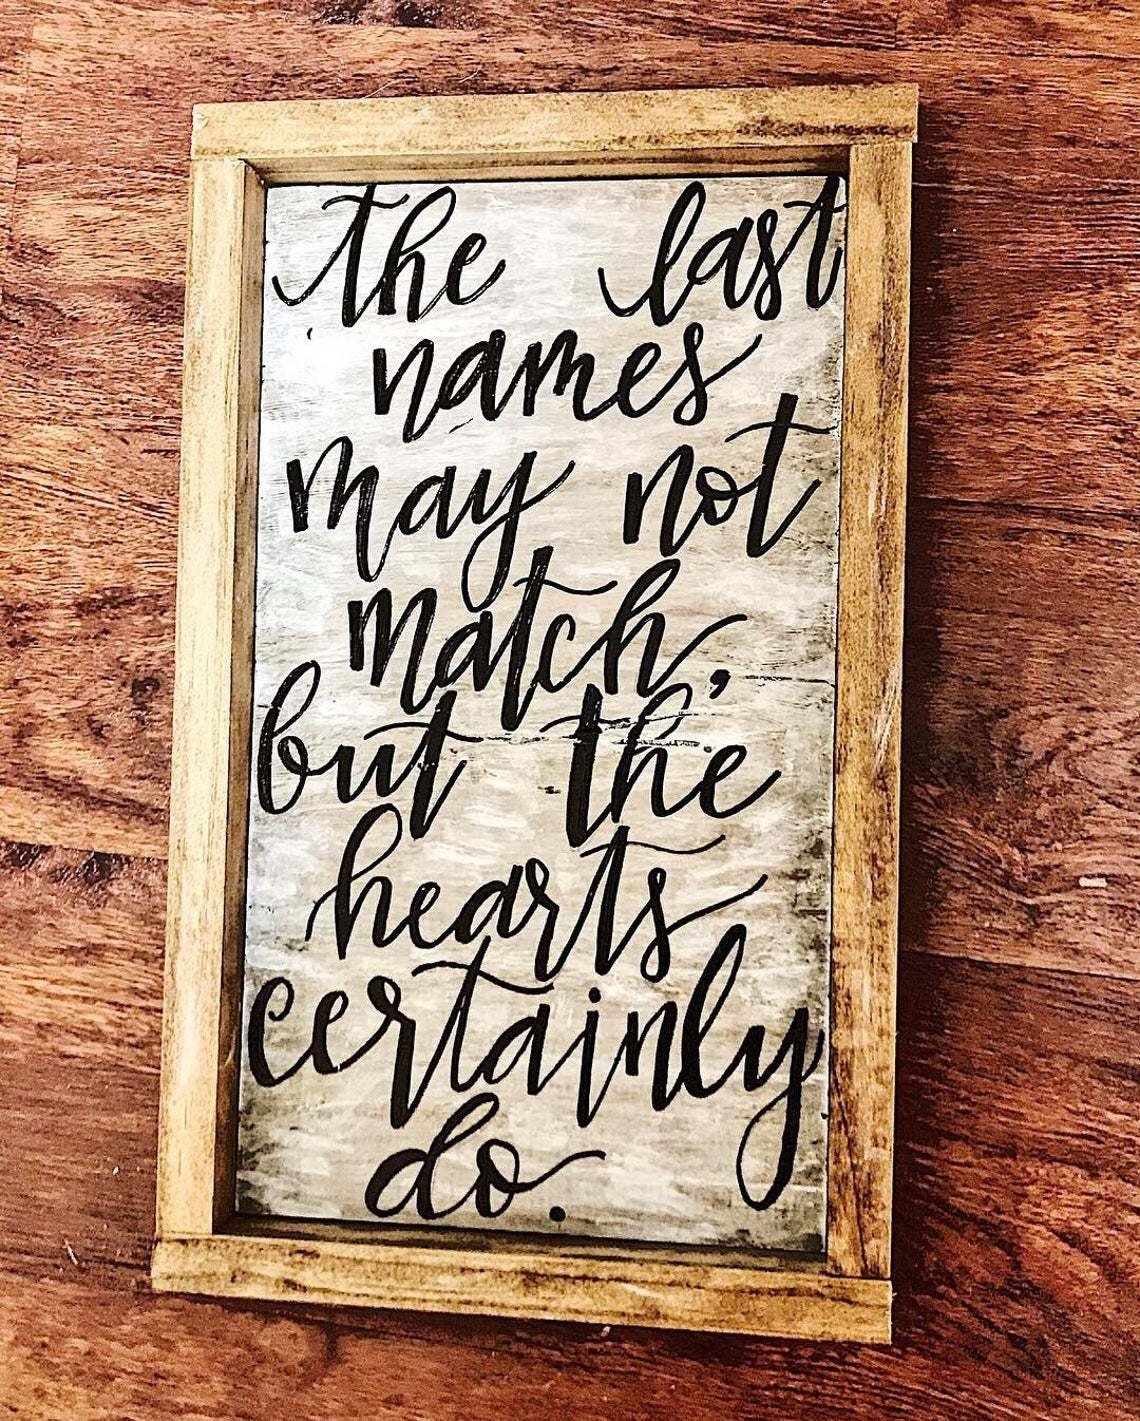 the last
names
may not
match,
but the
hearts
certainly
do.